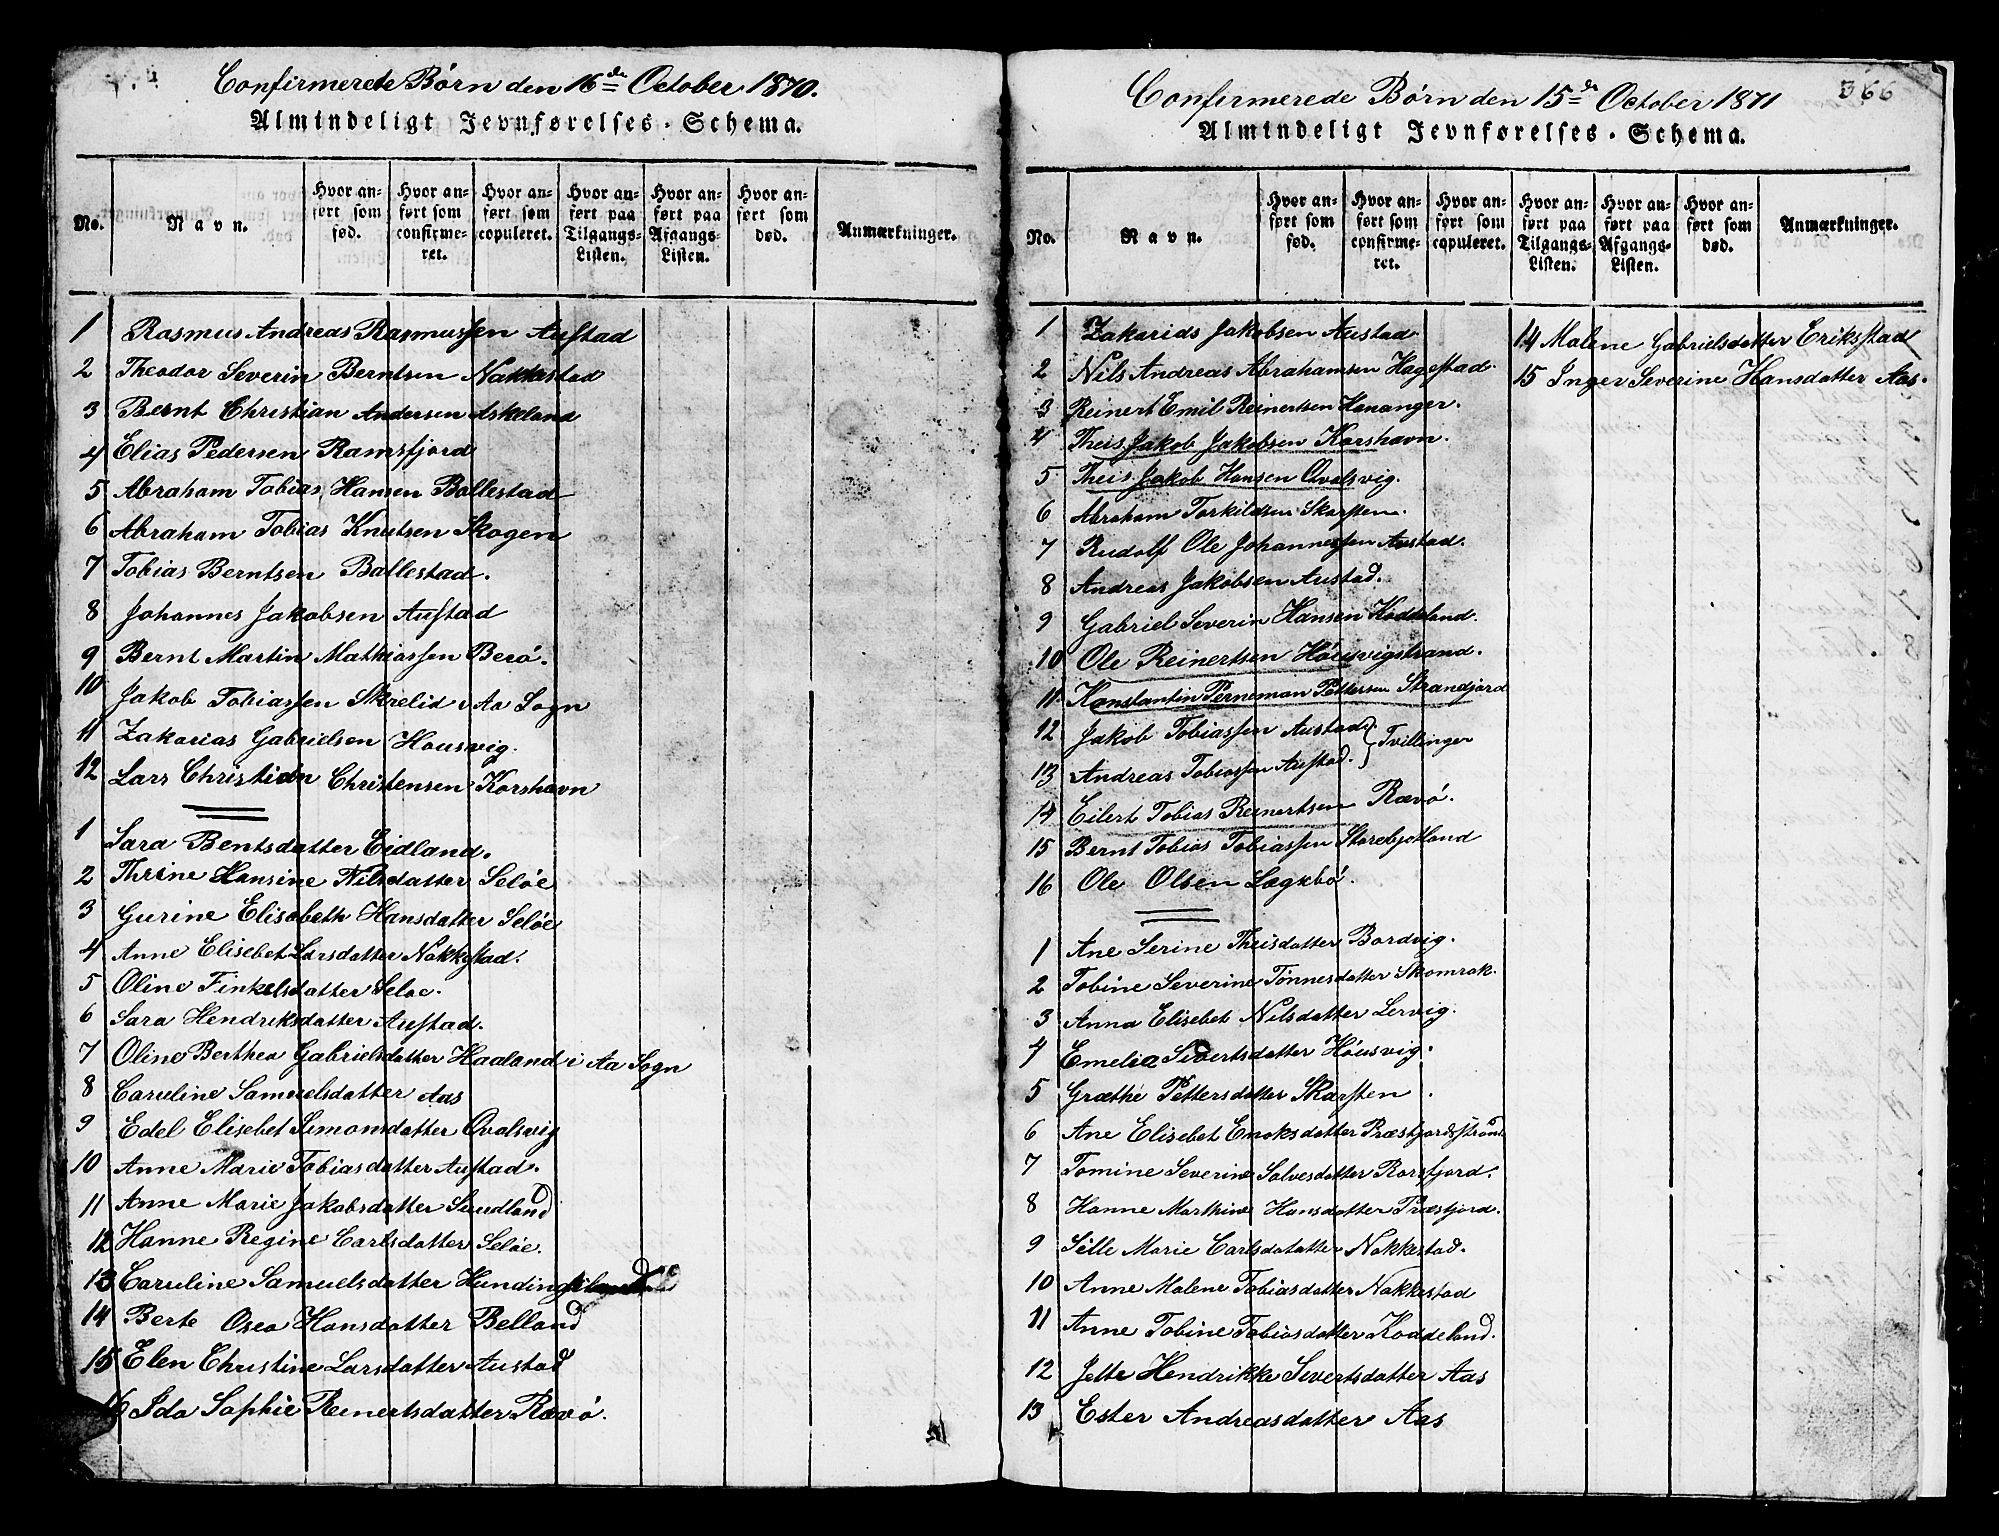 Confirmerede Børn den 16de October 1870.
Almindeligt Jevnførelses-Schema.
No.
Navn.
Hvor anført som fød.
Hvor anført som confirmeret.
Hvor anført som copuleret.
Hvor anført paa Tilgangs-Listen.
Hvor anført paa Afgangs-Listen.
Hvor anført som død.
Anmærkninger.
1 Rasmus Andreas Rasmussen Austad
2 Theodor Severin Berntsen Nakkestad
3 Bernt Christian Andersen Askeland
4 Elias Pedersen Ramsfjord
5 Abraham Tobias Hansen Ballestad
6 Abraham Tobias Knutsen Skogen
7 Tobias Berntsen Ballestad.
8 Johannes Jakobsen Austad
9 Bernt Martin Mathiassen Berø.
10 Jakob Tobiassen Skrelid i Aa Sogn
11 Zakarias Gabrielsen Housvig.
12 Lars Christian Christensen Korshavn
1 Sara Bentsdatter Eidland.
2 Thrine Hansine Nilsdatter Seløe
3 Gurine Elisabeth Hansdatter Seløe
4 Anne Elisebet Larsdatter Nakkestad.
5 Oline Finkelsdatter Seløe.
6 Sara Hendriksdatter Austad.
7 Oline Berthea Gabrielsdatter Haaland i Aa Sogn
8 Caruline Samuelsdatter Aas
9 Edel Elisebet Simonsdatter Qvalsvig
10 Anne Marie Tobiasdatter Austad.
11 Anne Marie Jakobsdatter Sundland
12 Hanne Regine Carlsdatter Seløe.
13 Caruline Samuelsdatter
14 Berte Osea Hansdatter Belland
15 Elen Christine Larsdatter Austad
16 Ida Sophie Reinertsdatter Rævø.
Confirmerede Børn den 15de October 1871
366
Almindeligt Jevnførelses-Schema.
No.
Navn.
Hvor anført som fød.
Hvor anført som confirmeret.
Hvor anført som copuleret.
Hvor anført paa Tilgangs-Listen.
Hvor anført paa Afgangs-Listen.
Hvor anført som død.
Anmærkninger.
1 Zakarias Jakobsen Austad
2 Nils Andreas Abrahamsen Hagestad.
3 Reinert Emil Reinertsen Hananger.
4 Theis Jakob Jakobsen Korshavn.
5 Theis Jakob Hansen Qvalsvig.
6 Abraham Torkildsen Skarsten.
7 Rudolf Ole Johannessen Austad.
8 Andreas Jakobsen Austad.
9 Gabriel Severin Hansen Koddeland.
10 Ole Reinertsen Höusvigstrand.
11 Konstantin Perneman Pettersen Strandfjord
12 Jakob Tobiassen Austad.
Tvillinger
13 Andreas Tobiassen Austad.
14 Eilert Tobias Reinertsen Rævø.
15 Bernt Tobias Tobiassen
16 Ole Olsen Lægkbø.
1 Ane Serine Theisdatter Bardvig.
2 Tobine Severine Tönnesdatter Skomrak.
3 Anna Elisebet Nilsdatter Lervig.
4 Emelia Sivertsdatter Höusvig.
5 Græthe Pettersdatter Skarsten.
6 Ane Elisebet Enoksdatter Præstfjordsstrand
7 Tomine Severine Salvesdatter
8 Hanne Marthine Hansdatter Præstfjord.
9 Sille Marie Carlsdatatter Nakkestad.
10 Anne Malene Tobiasdatter Nakkestad
11 Anne Tobine Tobiasdatter Koddeland.
12 Jette Hendrikke Sivertsdatter Aas
13 Ester Andreasdatter Aas
14 Malene Gabrielsdatter Eriksstad
15 Inger Severine Hansdatter Aas.